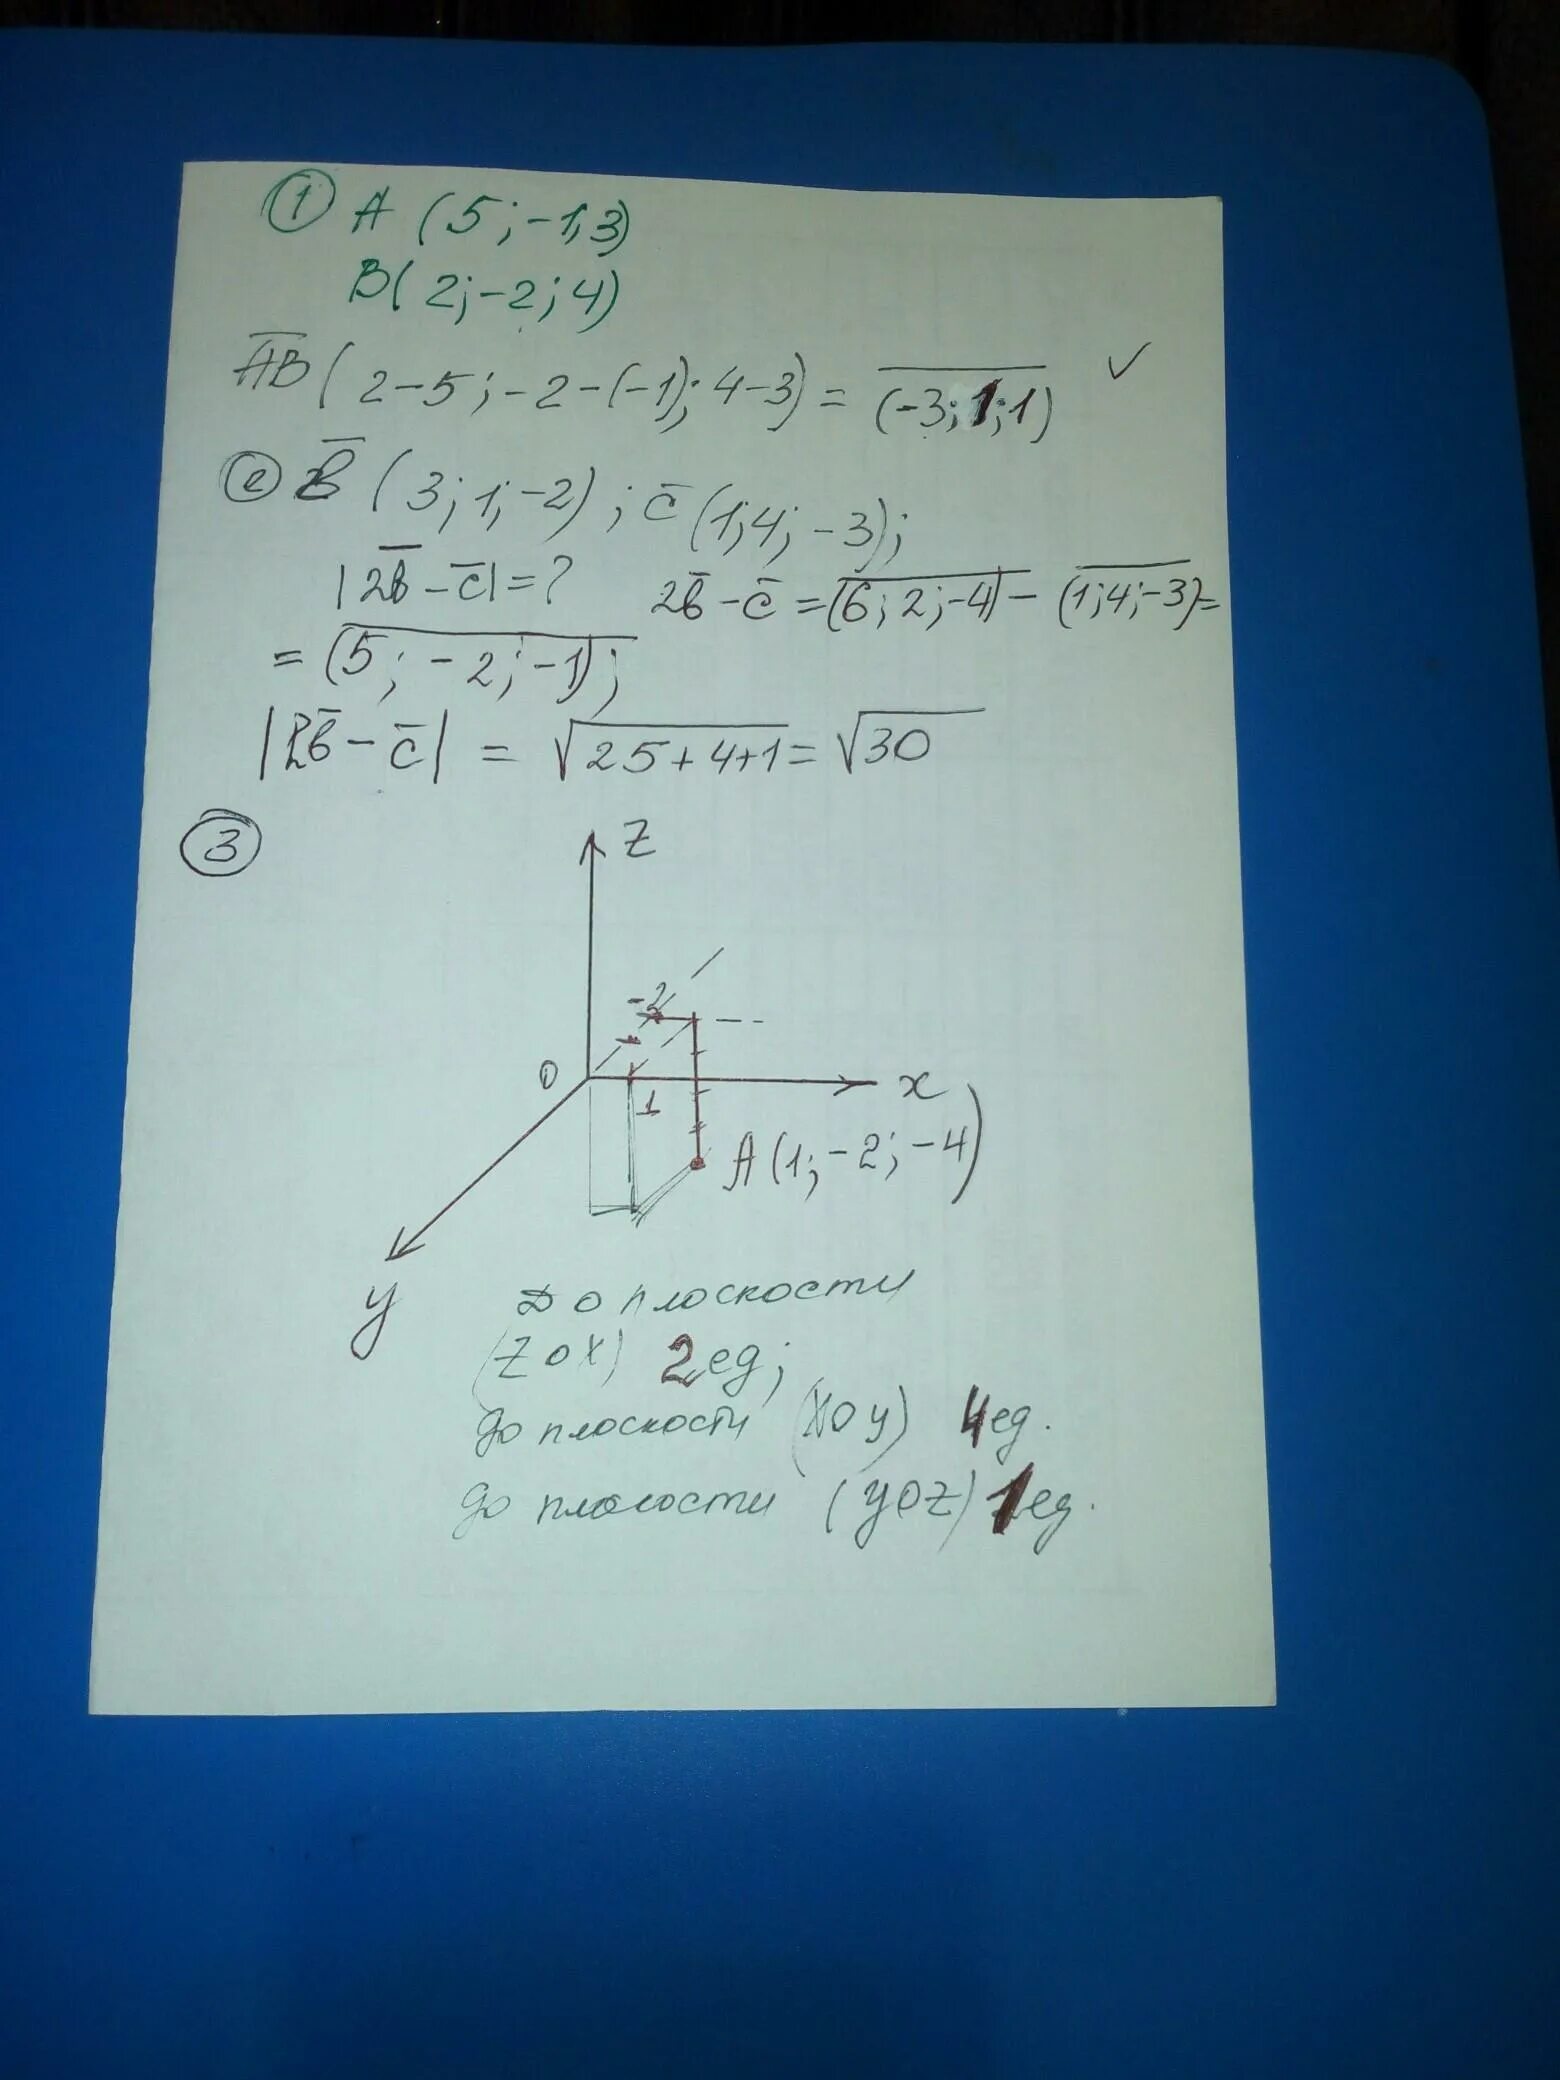 ① A (5; -1; 3)
B(2; -2; 4)
A̅B̅(2-5; -2-(-1); 4-3) = (-3; 1; 1) ✓
② b̅ (3; 1; -2); c̅ (1; 4; -3);
|2b̅ - c̅| = ? 2b̅ - c̅ = (6; 2; -4) - (1; 4; -3) =
= (5; -2; -1);
|2b̅ - c̅| = √25+4+1 = √30
③
z
-2
0
1
x
A(1; -2; -4)
y
До плоскости
(ZOX) 2ед;
до плоскости (XOY) 4ед.
до плоскости (YOZ) 1ед.